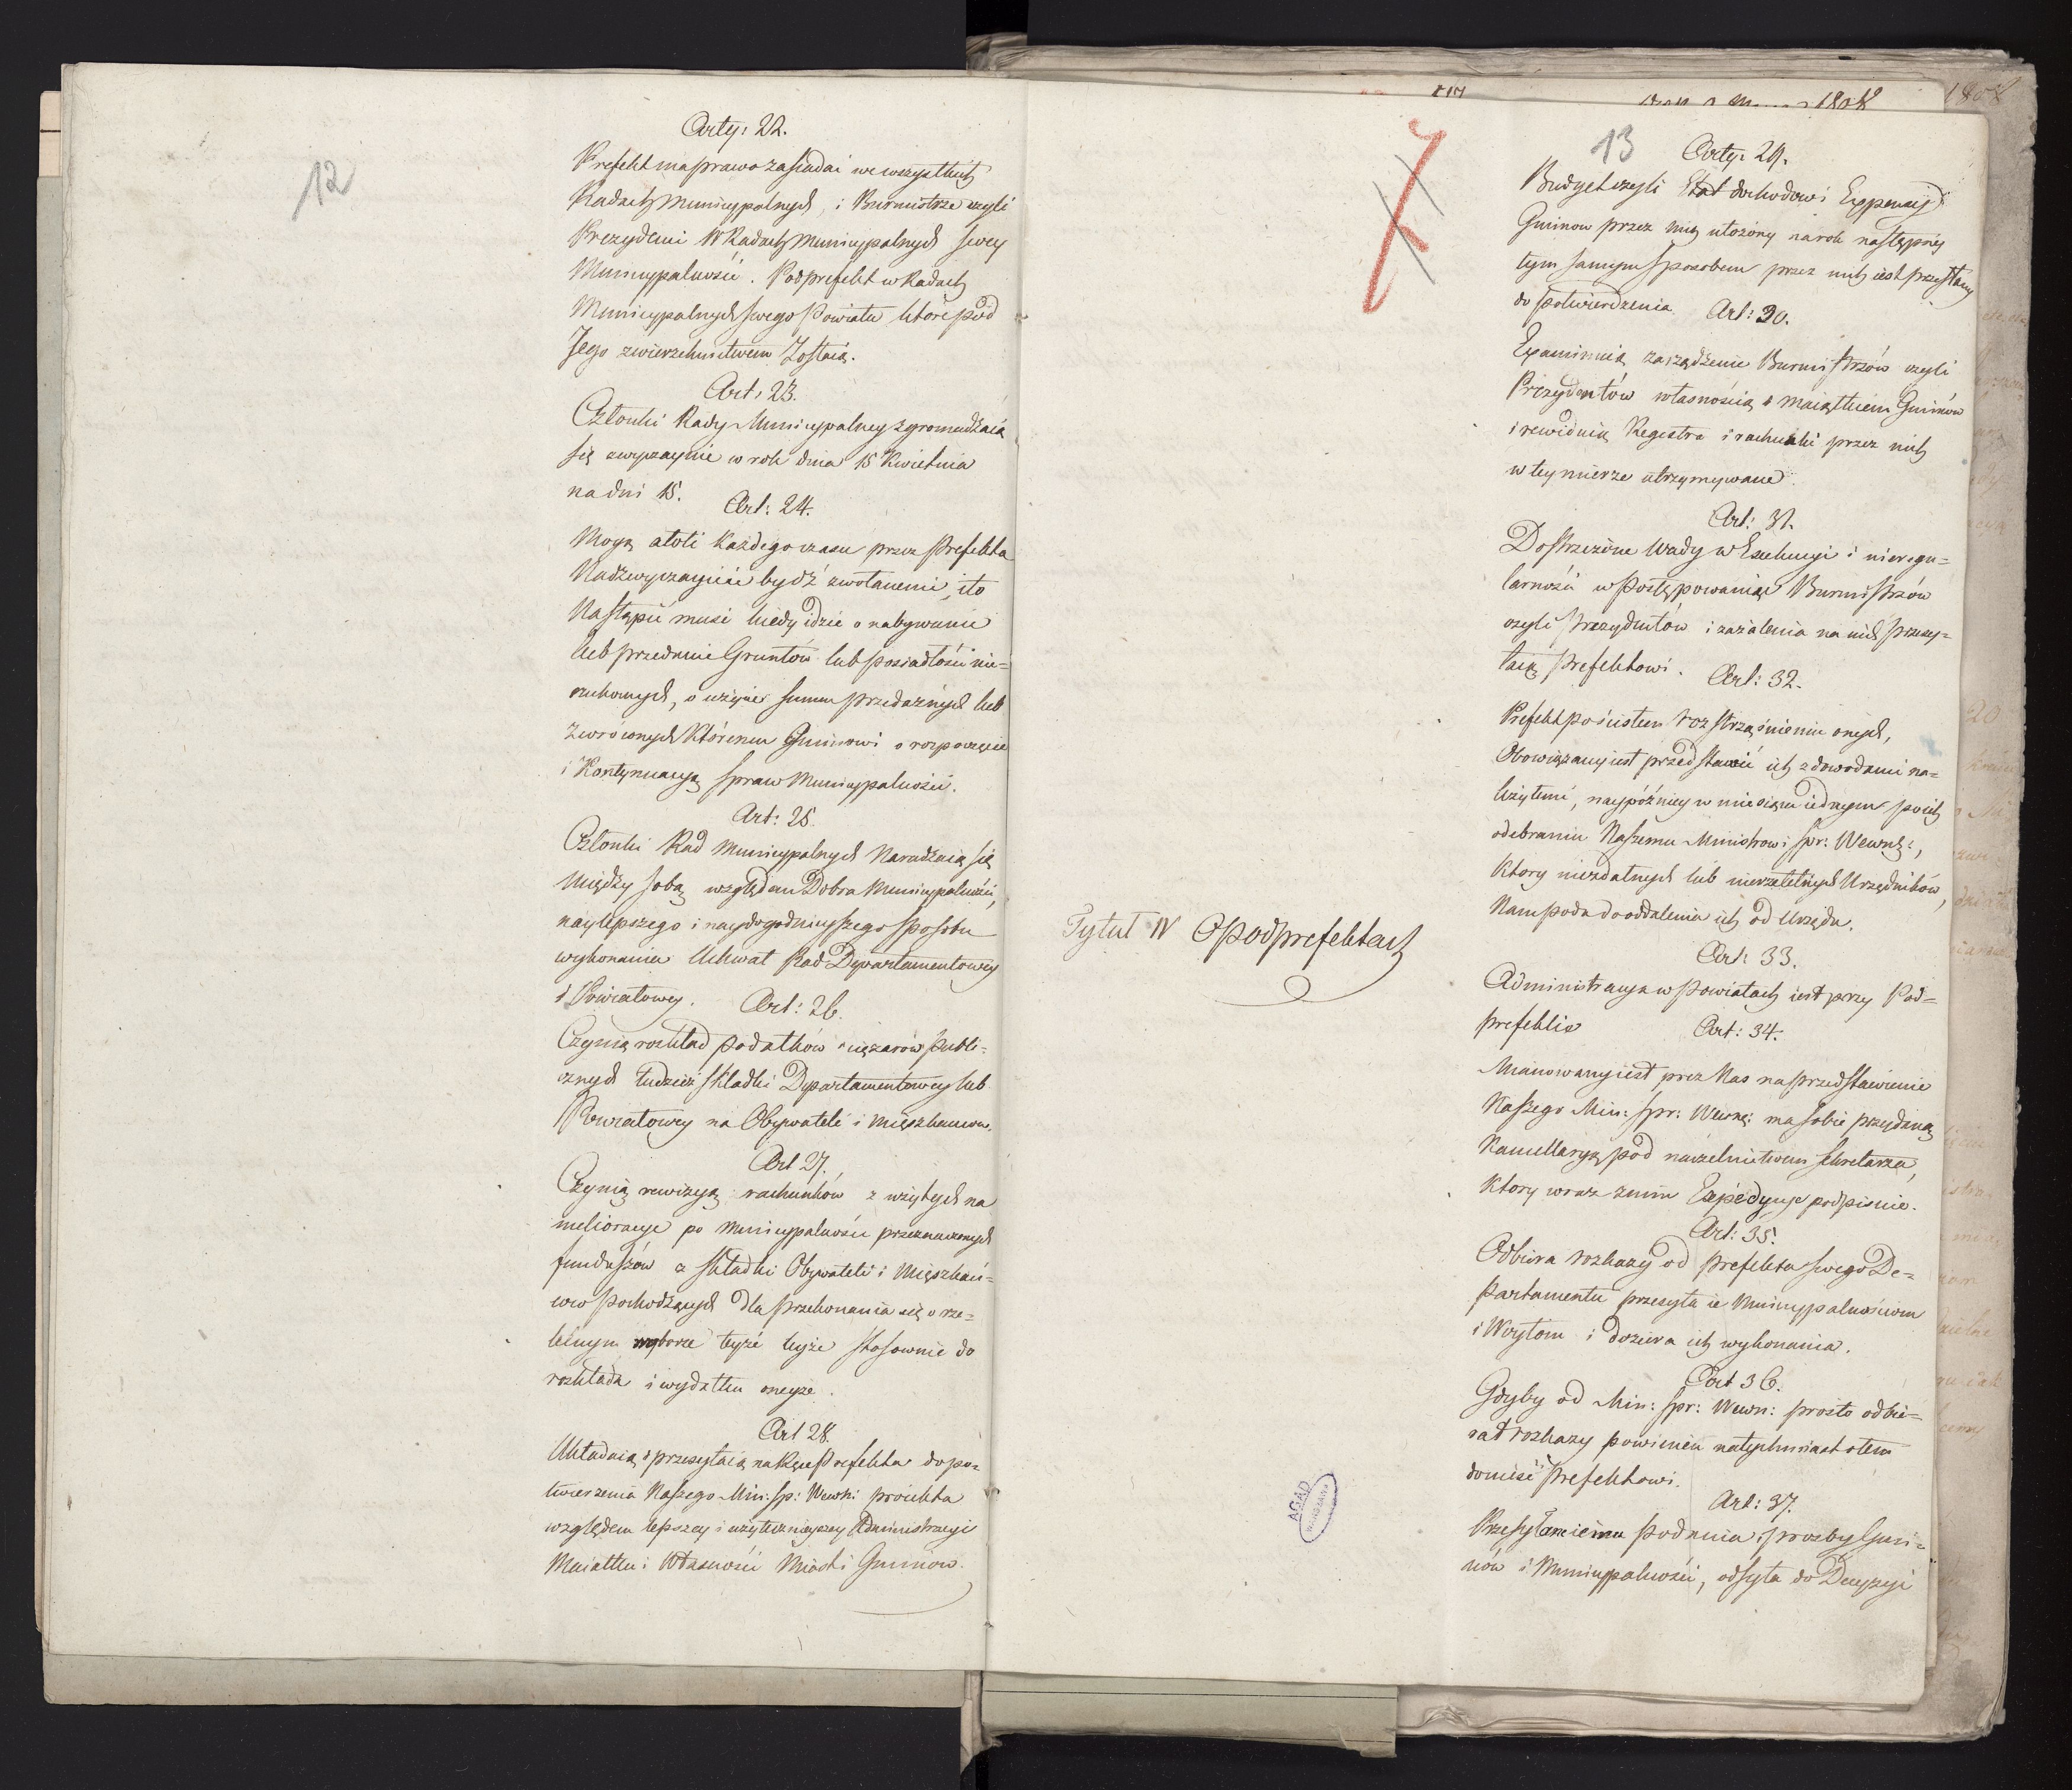 12
Arty: 22.
Prefekt ma prawo zasiadać we wszystkich
Radach Municypalnych, i Burmistrze czyli
Prezydenci w Radach Municypalnych swey
Municypalności. Podprefekt w Radach
Municypalnych swego Powiatu które pod
Jego zwierzchnictwem Zostaią.
Art: 23.
Członki Rady Municypalney zgromadzaią
się zwyczaynie w rok dnia 15 Kwietnia
na dni 15.
Art: 24.
Mogą atoli każdego czasu przez Prefekta
Nadzwyczaynie bydź zwołanemi, i to
Nastąpić musi kiedy idzie o nabywanie
lub przedanie Gruntów lub posiadłości nie=
ruchomych, o użycie summ przedażnych lub
zwróconych któremu Gminowi o rozpoczęcie
i Kontynuacyą spraw Municypalności.
Art: 25.
Członki Rad Municypalnych Naradzaią się
Między sobą względem Dobra Municypalności,
naylepszego i naydogodnieyszego sposobu
wykonania Uchwał Rad Departamentowey
i Powiatowey.
Art: 26.
Czynią rozkład podatków i ciężarów publi=
cznych tudzież składki Departamentowey lub
Powiatowey na Obywateli i Mieszkańców.
Art 27.
Czynią rewizyą rachunków z użytych na
melioracye po Municypalności przeznaczonych
funduszów z składki Obywateli i Mieszkań=
ców pochodzących dla przekonania się o rze=
telnym wyborze teyże teyże stosownie do
rozkładu i wydatku oneyże.
Art 28.
Układaią i przesyłaią na Ręce Prefekta do po=
twierdzenia Naszego Min: Sp: Wewn: proiekta
względem lepszey i użytecznieyszey Administracyi
Maiątku i Własności Miast i Gminow.
13
Arty: 29.
Budget czyli Etat dochodow i Expensy
Gminow przez nich ułożony na rok następny
tym samym sposobem przez nich iest przesłany
do potwierdzenia.
Art: 30.
Examinuią zarządzenie Burmistrzów czyli
Prezydentów własnością i maiątkiem Gminów
i rewiduią Regestra i rachunki przez nich
w tey mierze utrzymywane.
Art: 31.
Dostrzeżone Wady w Exekucyi i nieregu=
larności w postępowaniu Burmistrzów
czyli Prezydentów i zażalenia na nich przesy=
łaią Prefektowi.
Art: 32.
Prefekt po ścisłem rozstrząśnieniu onych,
Obowiązany iest przedstawić ich z dowodami na=
leżytemi, naypóźniey w miesiącu iednym po ich
odebraniu Naszemu Ministrowi Spr: Wewnę:,
Ktory niezdatnych lub nierzetelnych Urzędników,
Nam poda do oddalenia ich od Urzędu.
Tytuł IV O Podprefektach
Art: 33.
Administracya w Powiatach iest przy Pod=
prefekcie
Art: 34.
Mianowany iest przez Nas na przedstawienie
Naszego Min: Spr: Wewnę: ma sobie przydaną
Kancellaryą pod naczelnictwem Sekretarza,
Ktory wraz z nim Expedycye podpisuie.
Art: 35.
Odbiera rozkazy od Prefekta swego De=
partamentu przesyła ie Municypalnościom
i Woytom i dozira ich wykonania.
Art 36.
Gdyby od Min: Spr: Wewn: prosto odbie=
rał rozkazy powinien natychmiast o tem
donieść Prefektowi.
Art: 37.
Przesyłane iemu podania i prozby Gmi=
nów i Municypalności, odsyła do Decyzyi
AGAD
WARSZAWA